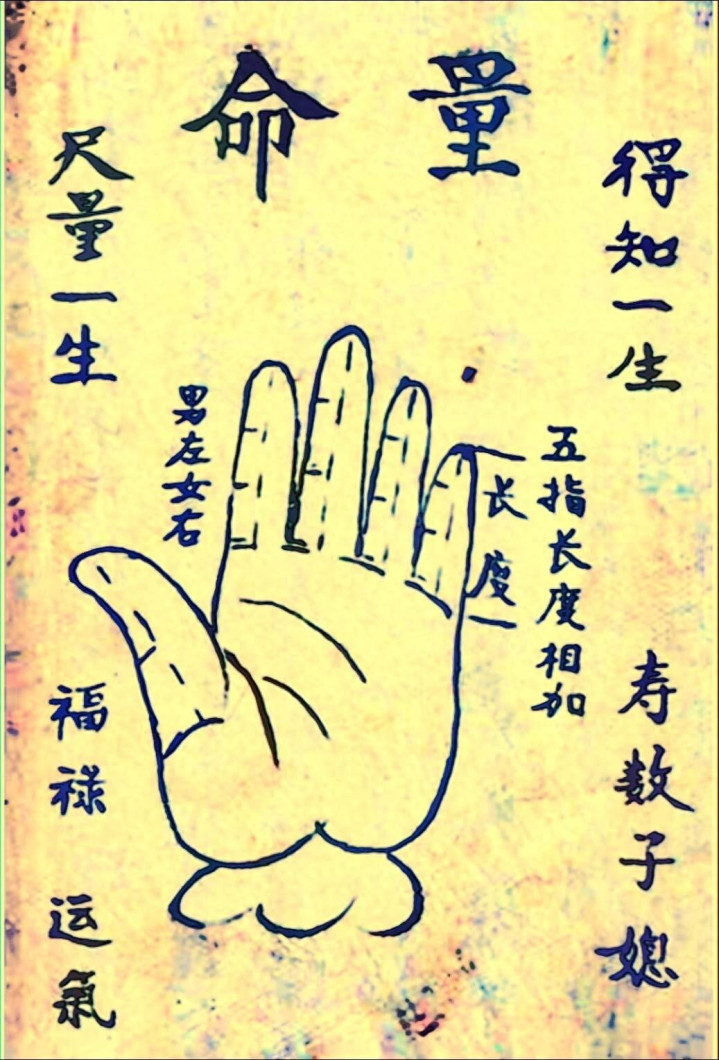 量命
得知一生
寿数子媳
五指长度相加
长度
男左女右
尺量一生
福禄
运氣